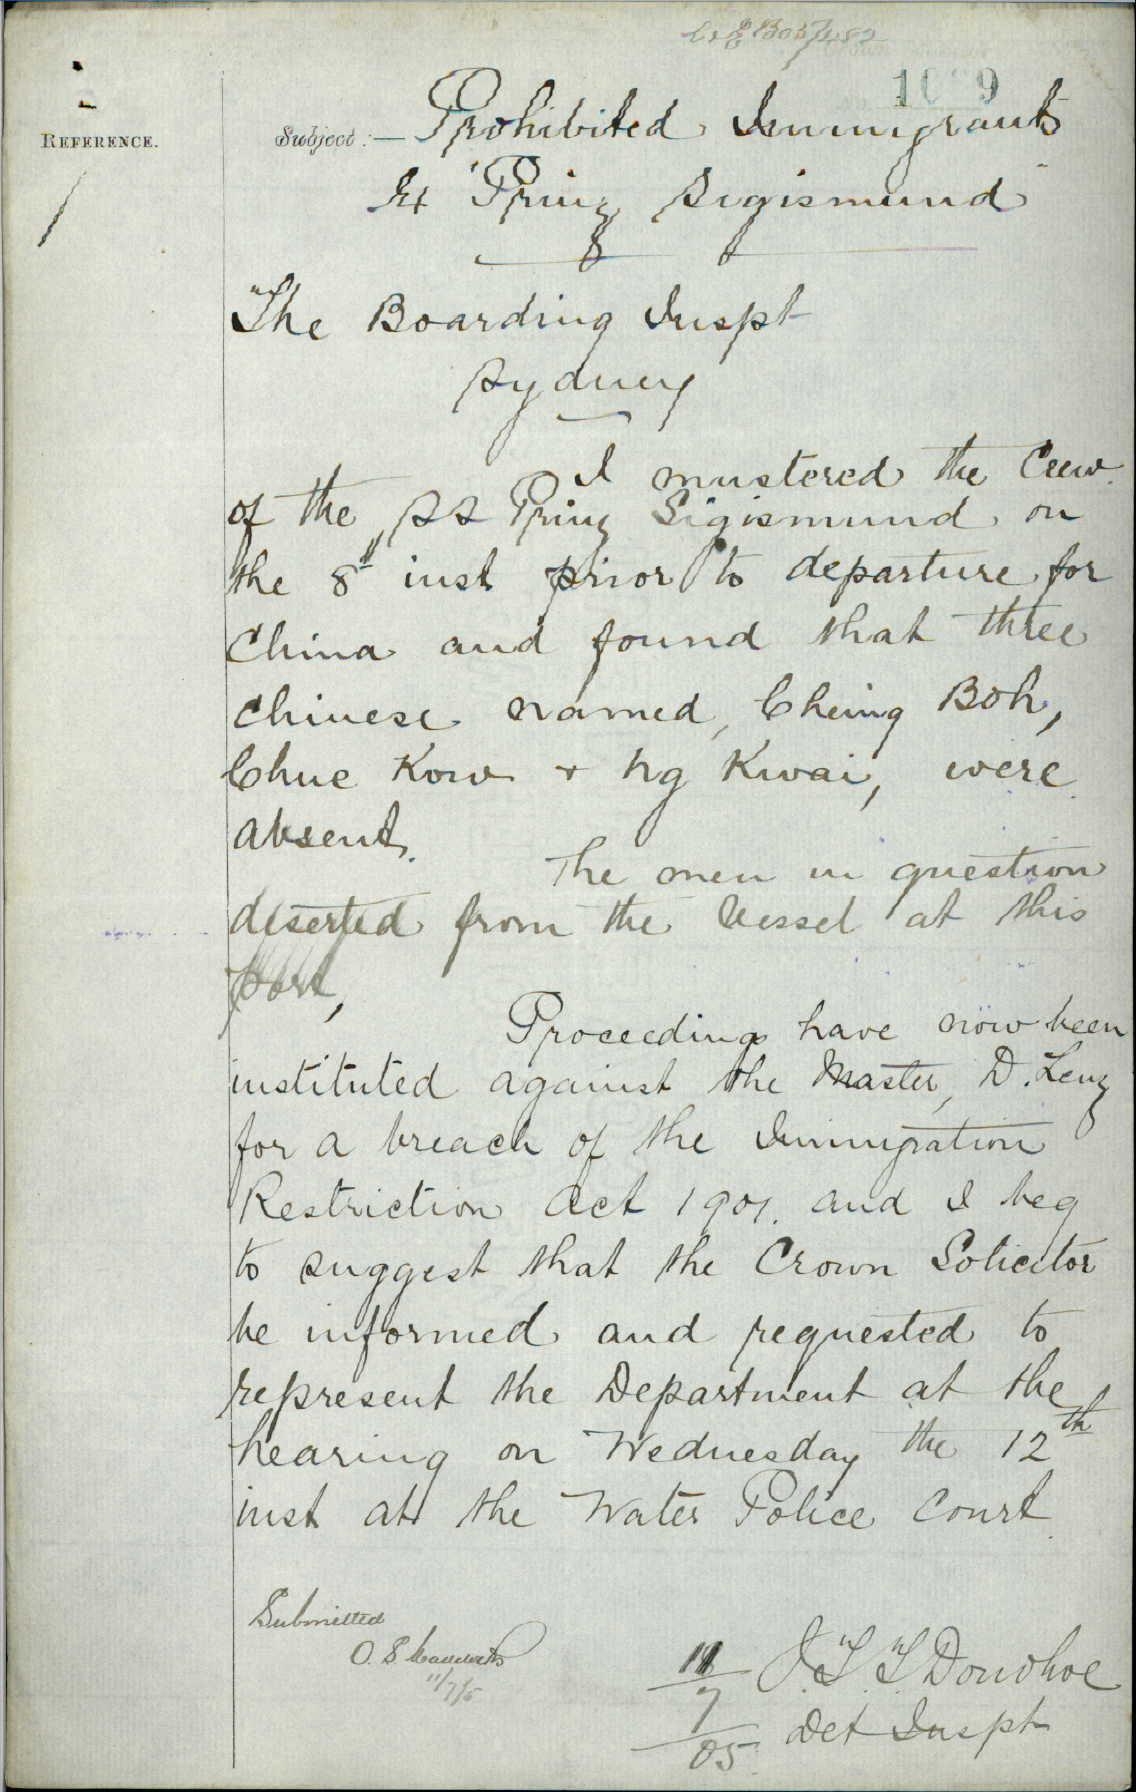 REFERENCE.
Subject:- Prohibited Immigrants
"Prinz Sigismund"
The Boarding Inspt
Sydney
I mustered the Crew
of the SS Prinz Sigismund on
the 8th inst prior to departure for
China and found that three
Chinese named, Cheing Boh,
Chue Kow & Ng Kwai, were
absent.
The men in question
deserted from the Vessel at this
Port,
Proceedings have now been
instituted against the Master, D. Lenz
for a breach of the Immigration
Restriction Act 1901. and I beg
to suggest that the Crown Solicitor
be informed and requested to
represent the Department at the
hearing on Wednesday the 12th
inst at the Water Police Court.
Submitted
11/7/5
11/7/05
J. T. T. Donohoe
Det Inspt